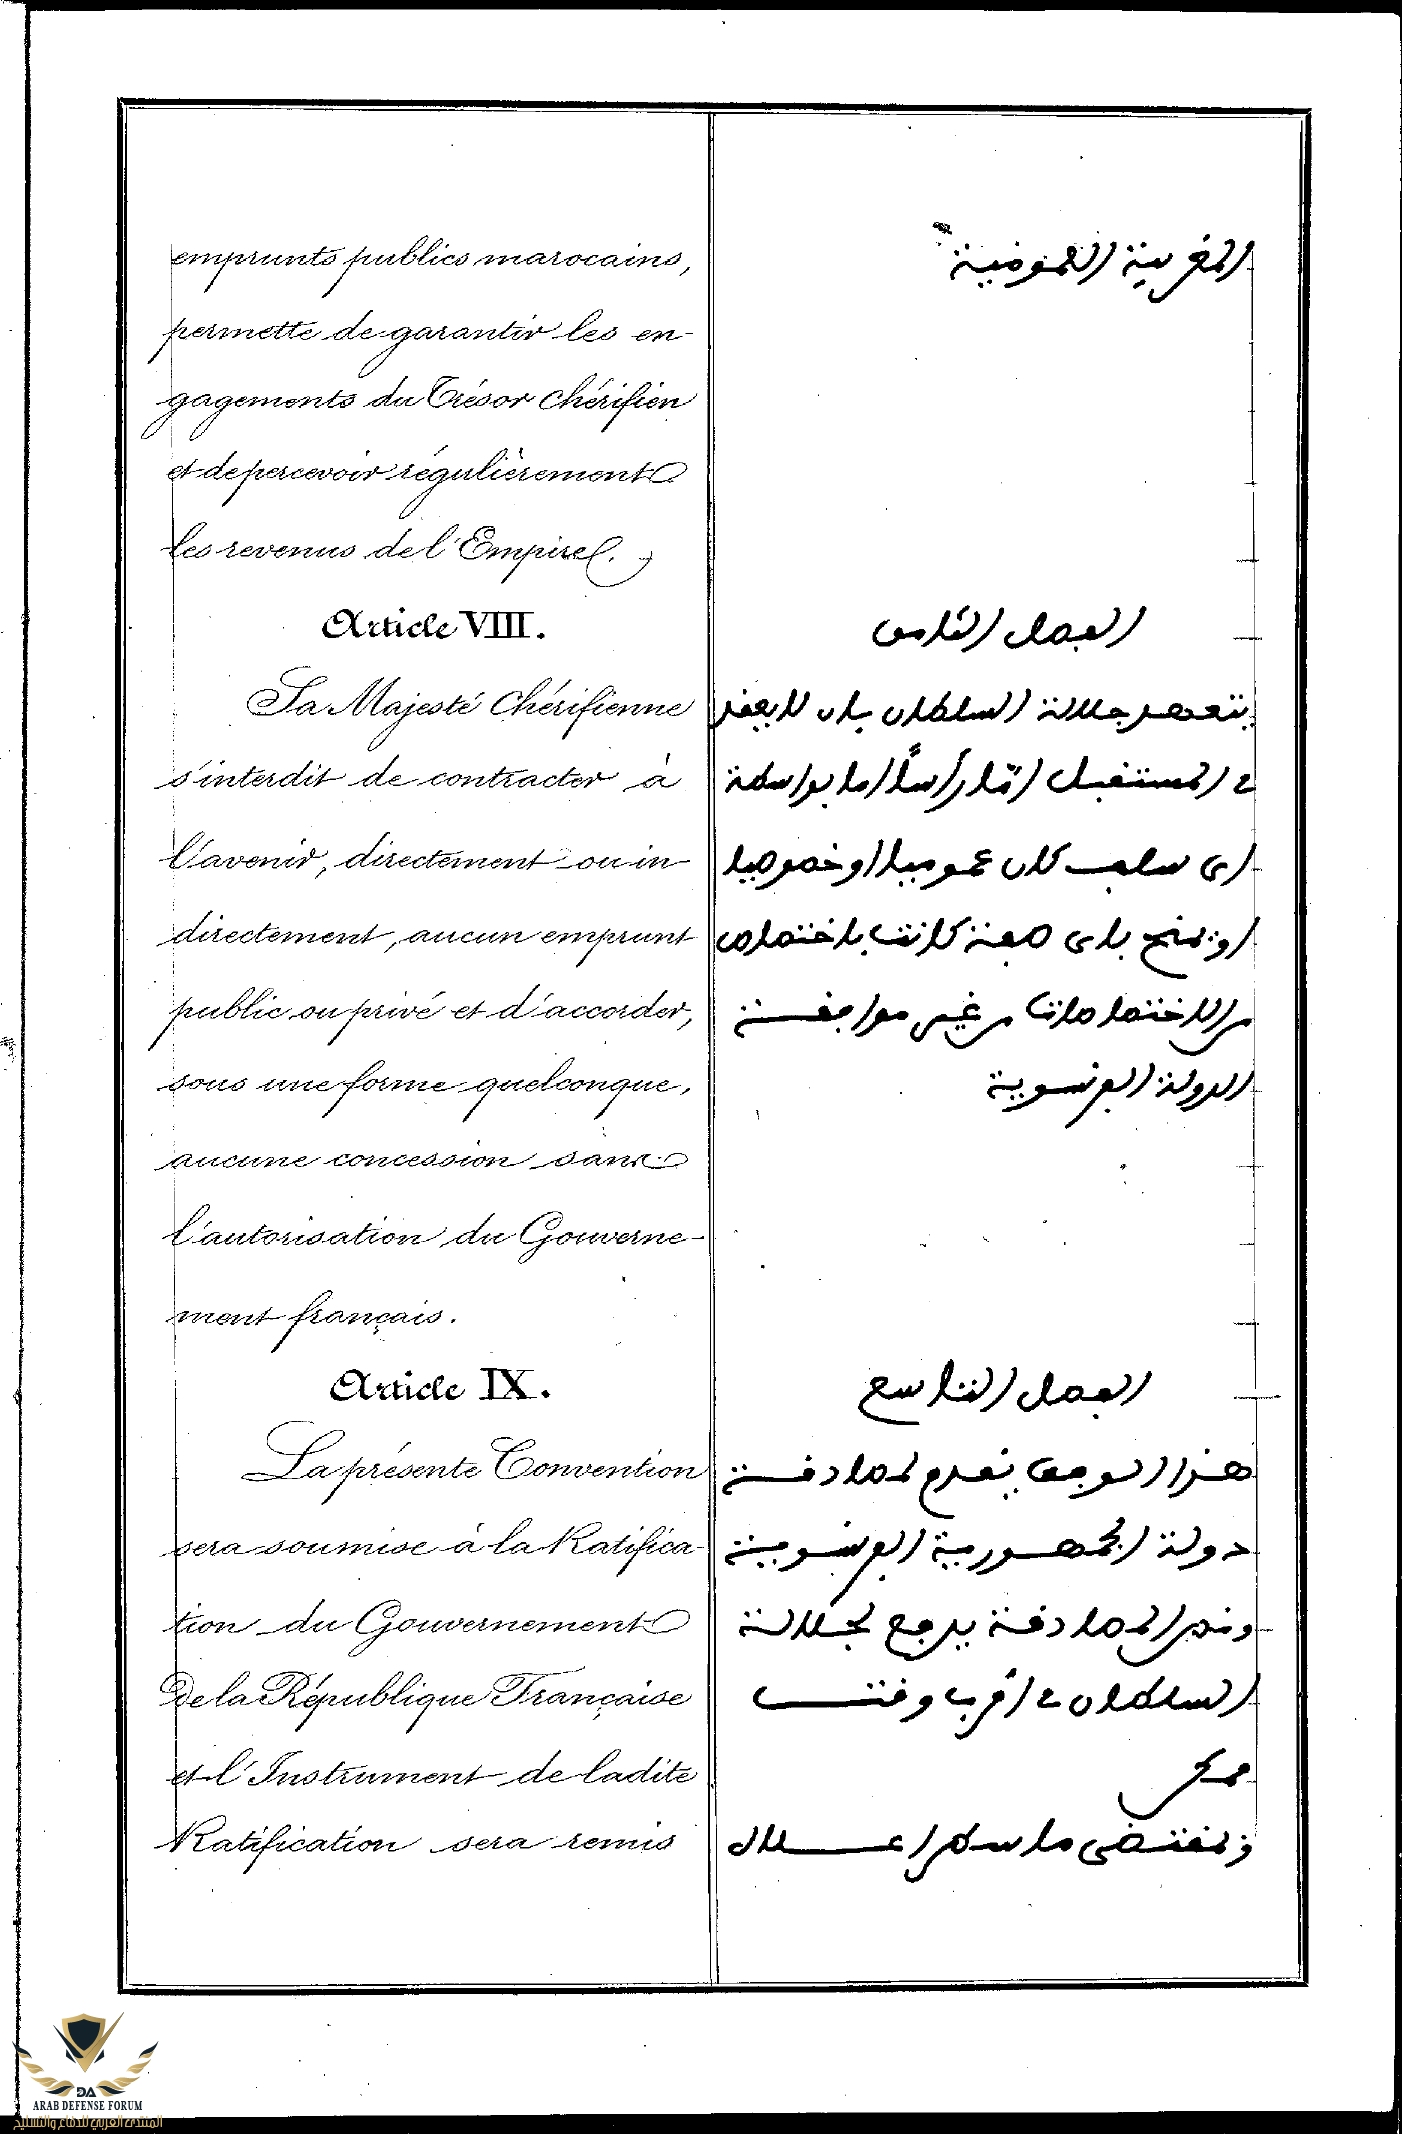 emprunts publics marocains,
permette de garantir les en-
gagements du Trésor Chérifien
et de percevoir régulièrement
les revenus de l'Empire.
Article VIII.
Sa Majesté Chérifienne
s'interdit de contracter à
l'avenir, directement ou in-
directement, aucun emprunt
public ou privé et d'accorder,
sous une forme quelconque,
aucune concession sans
l'autorisation du Gouverne-
ment français.
Article IX.
La présente Convention
sera soumise à la Ratifica-
tion du Gouvernement
de la République Française
et l'Instrument de ladite
Ratification sera remis
المغربية العمومية
الفصل الثامن
يتعهد جلالة السلطان بان لا يعقد
في المستقبل امّا رأسًا اما بواسطة
اى سلف كان عموميا او خصوصيا
او يمنح باى صفة كانت باختصاص
من الاختصاصات من غير موافقة
الدولة الفرنسوية
الفصل التاسع
هذا الوفق يقدم لمصادقة
دولة الجمهورية الفرنسوية
وهذه المصادقة يدفع لجلالة
السلطان في أقرب وقت
بمقتضى ما سطر اعلاه
DA
ARAB DEFENSE FORUM
المنتدى العربي للدفاع والتسليح